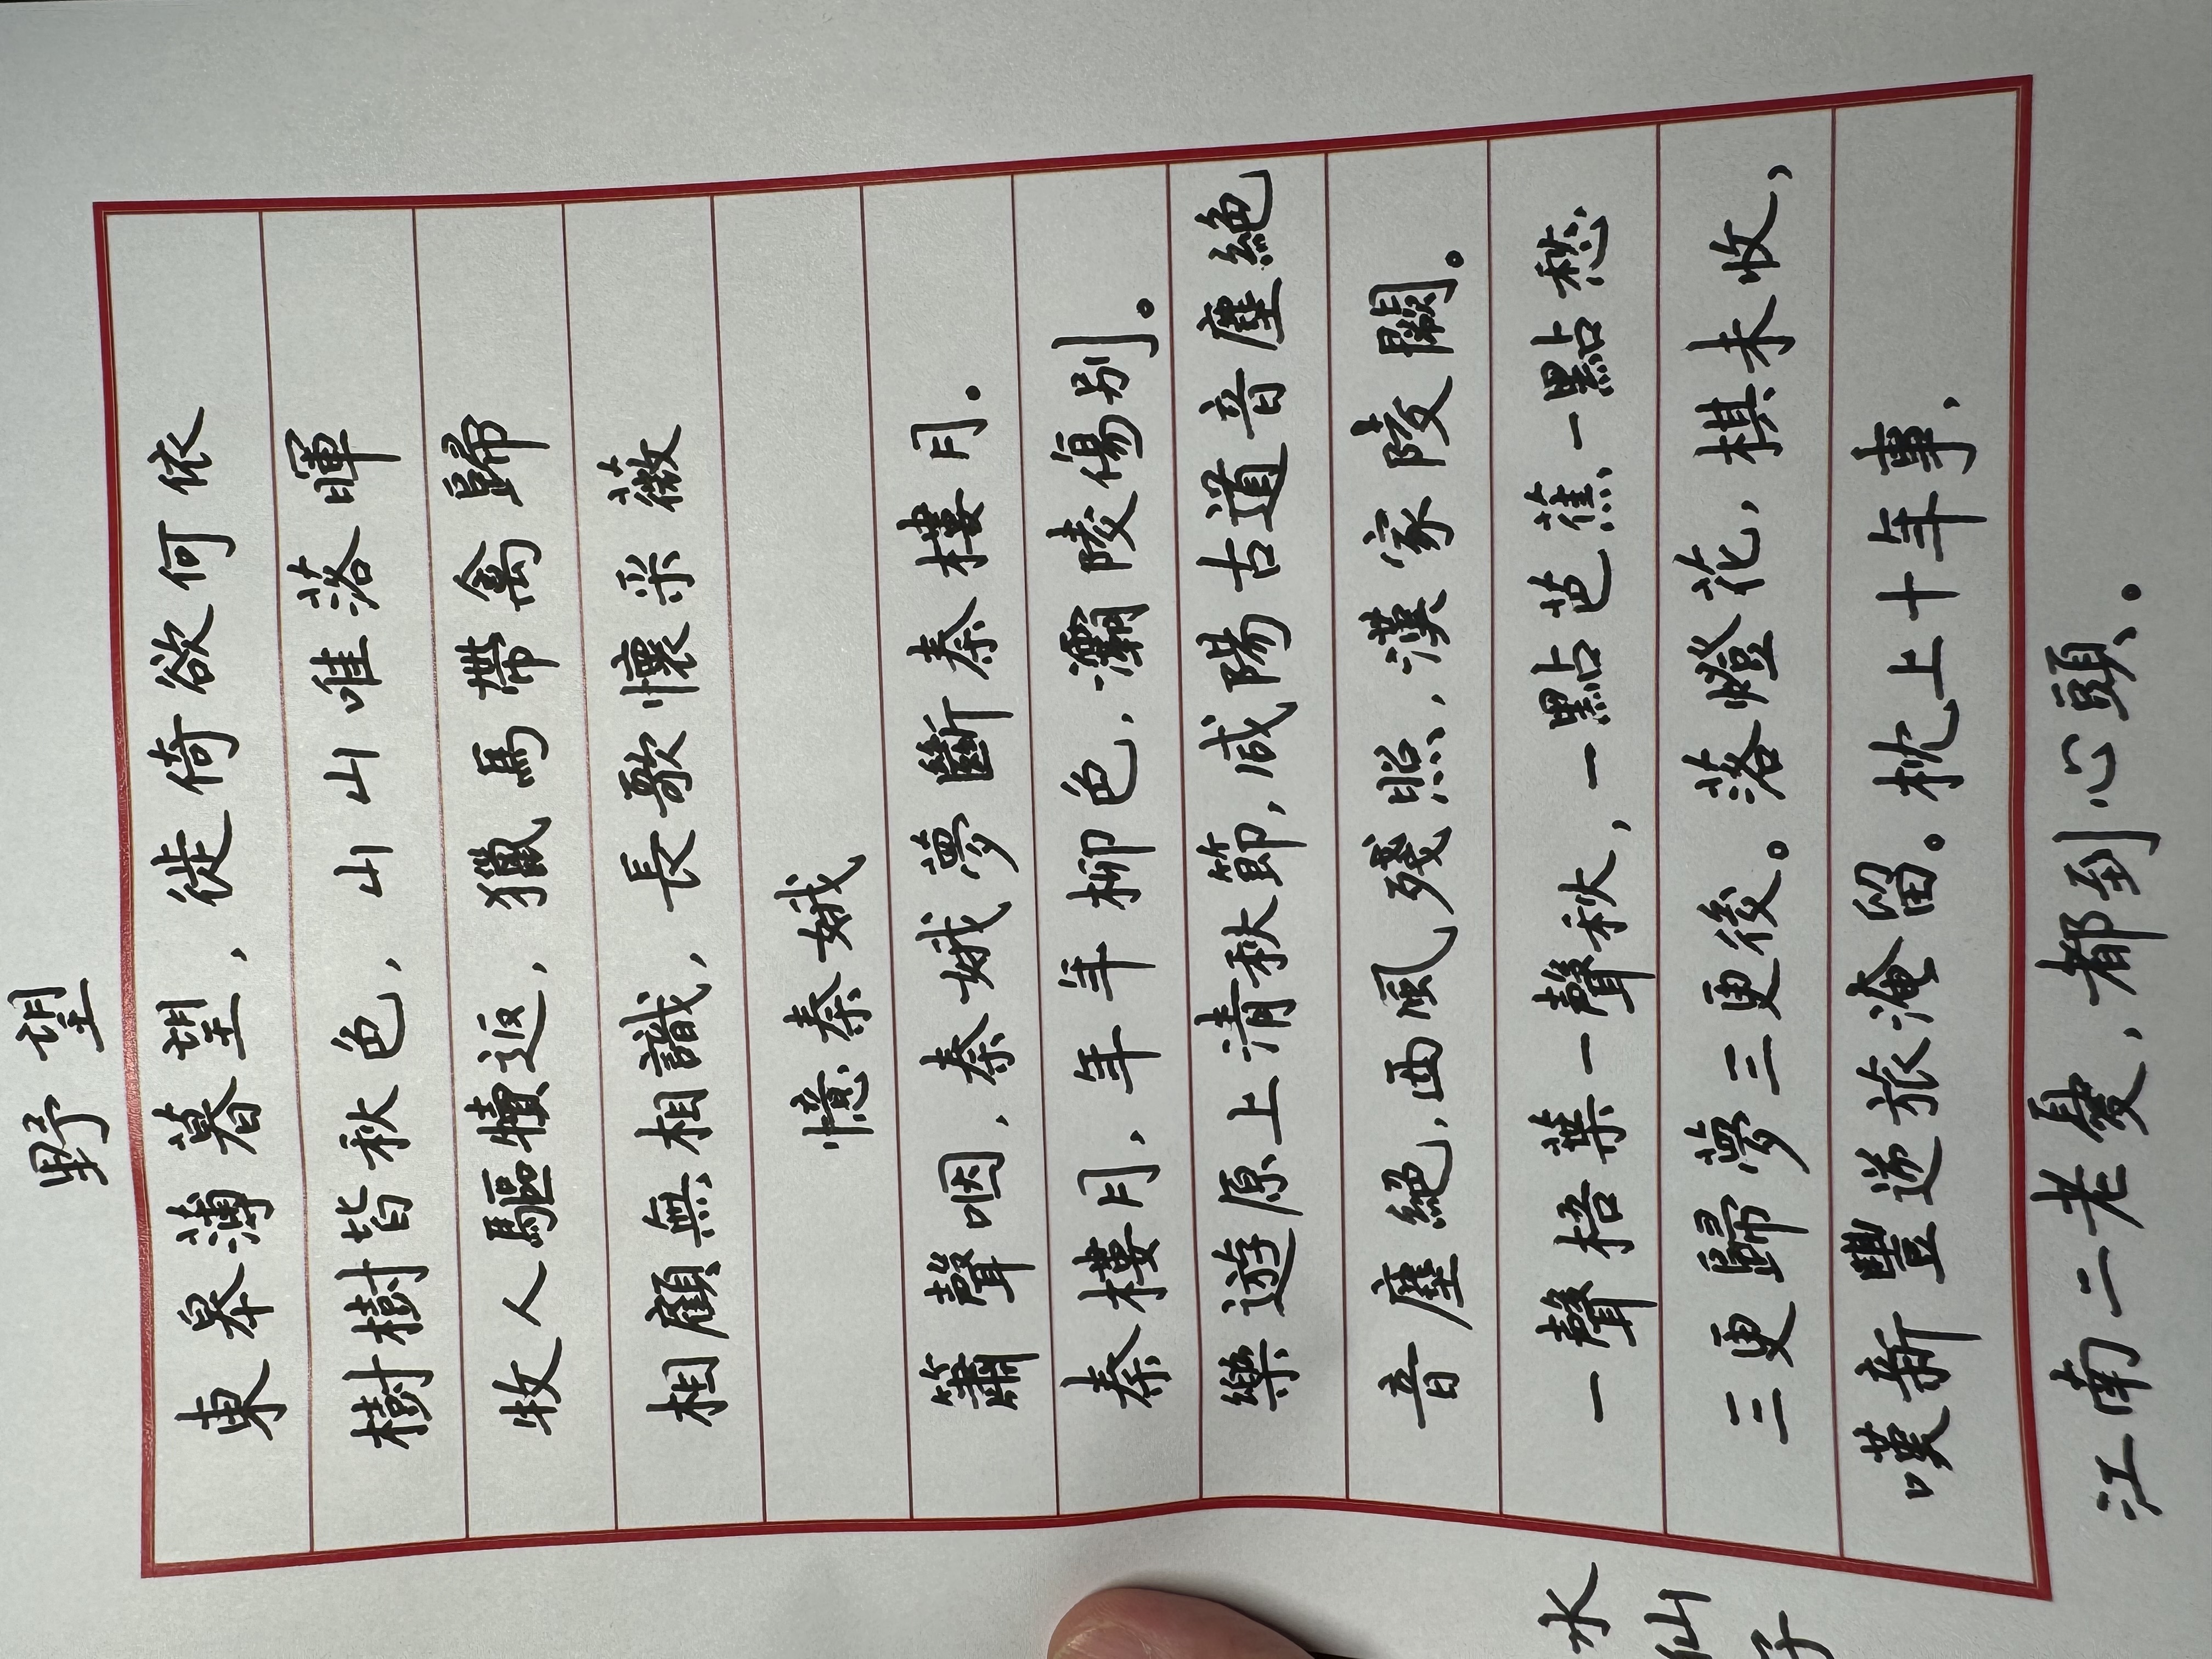 野望
東皋薄暮望,徙倚欲何依
樹樹皆秋色,山山唯落暉
牧人驅犢返,獵馬帶禽歸
相顧無相識,長歌懷采薇
憶秦娥
簫聲咽,秦娥夢斷秦樓月。
秦樓月,年年柳色,灞陵傷別。
樂遊原上清秋節,咸陽古道音塵絕
音塵絕,西風殘照,漢家陵闕。
水仙子
一聲梧葉一聲秋,一點芭蕉一點愁
三更歸夢三更後。落燈花,棋未收,
嘆新豐逆旅淹留。枕上十年事,
江南二老憂,都到心頭。